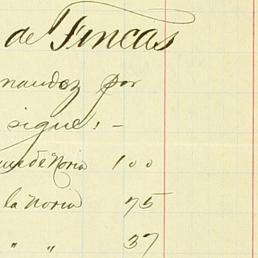 de Fincas
nandez por
sigue: -
de Noria 100
la Noria 75
" " 37